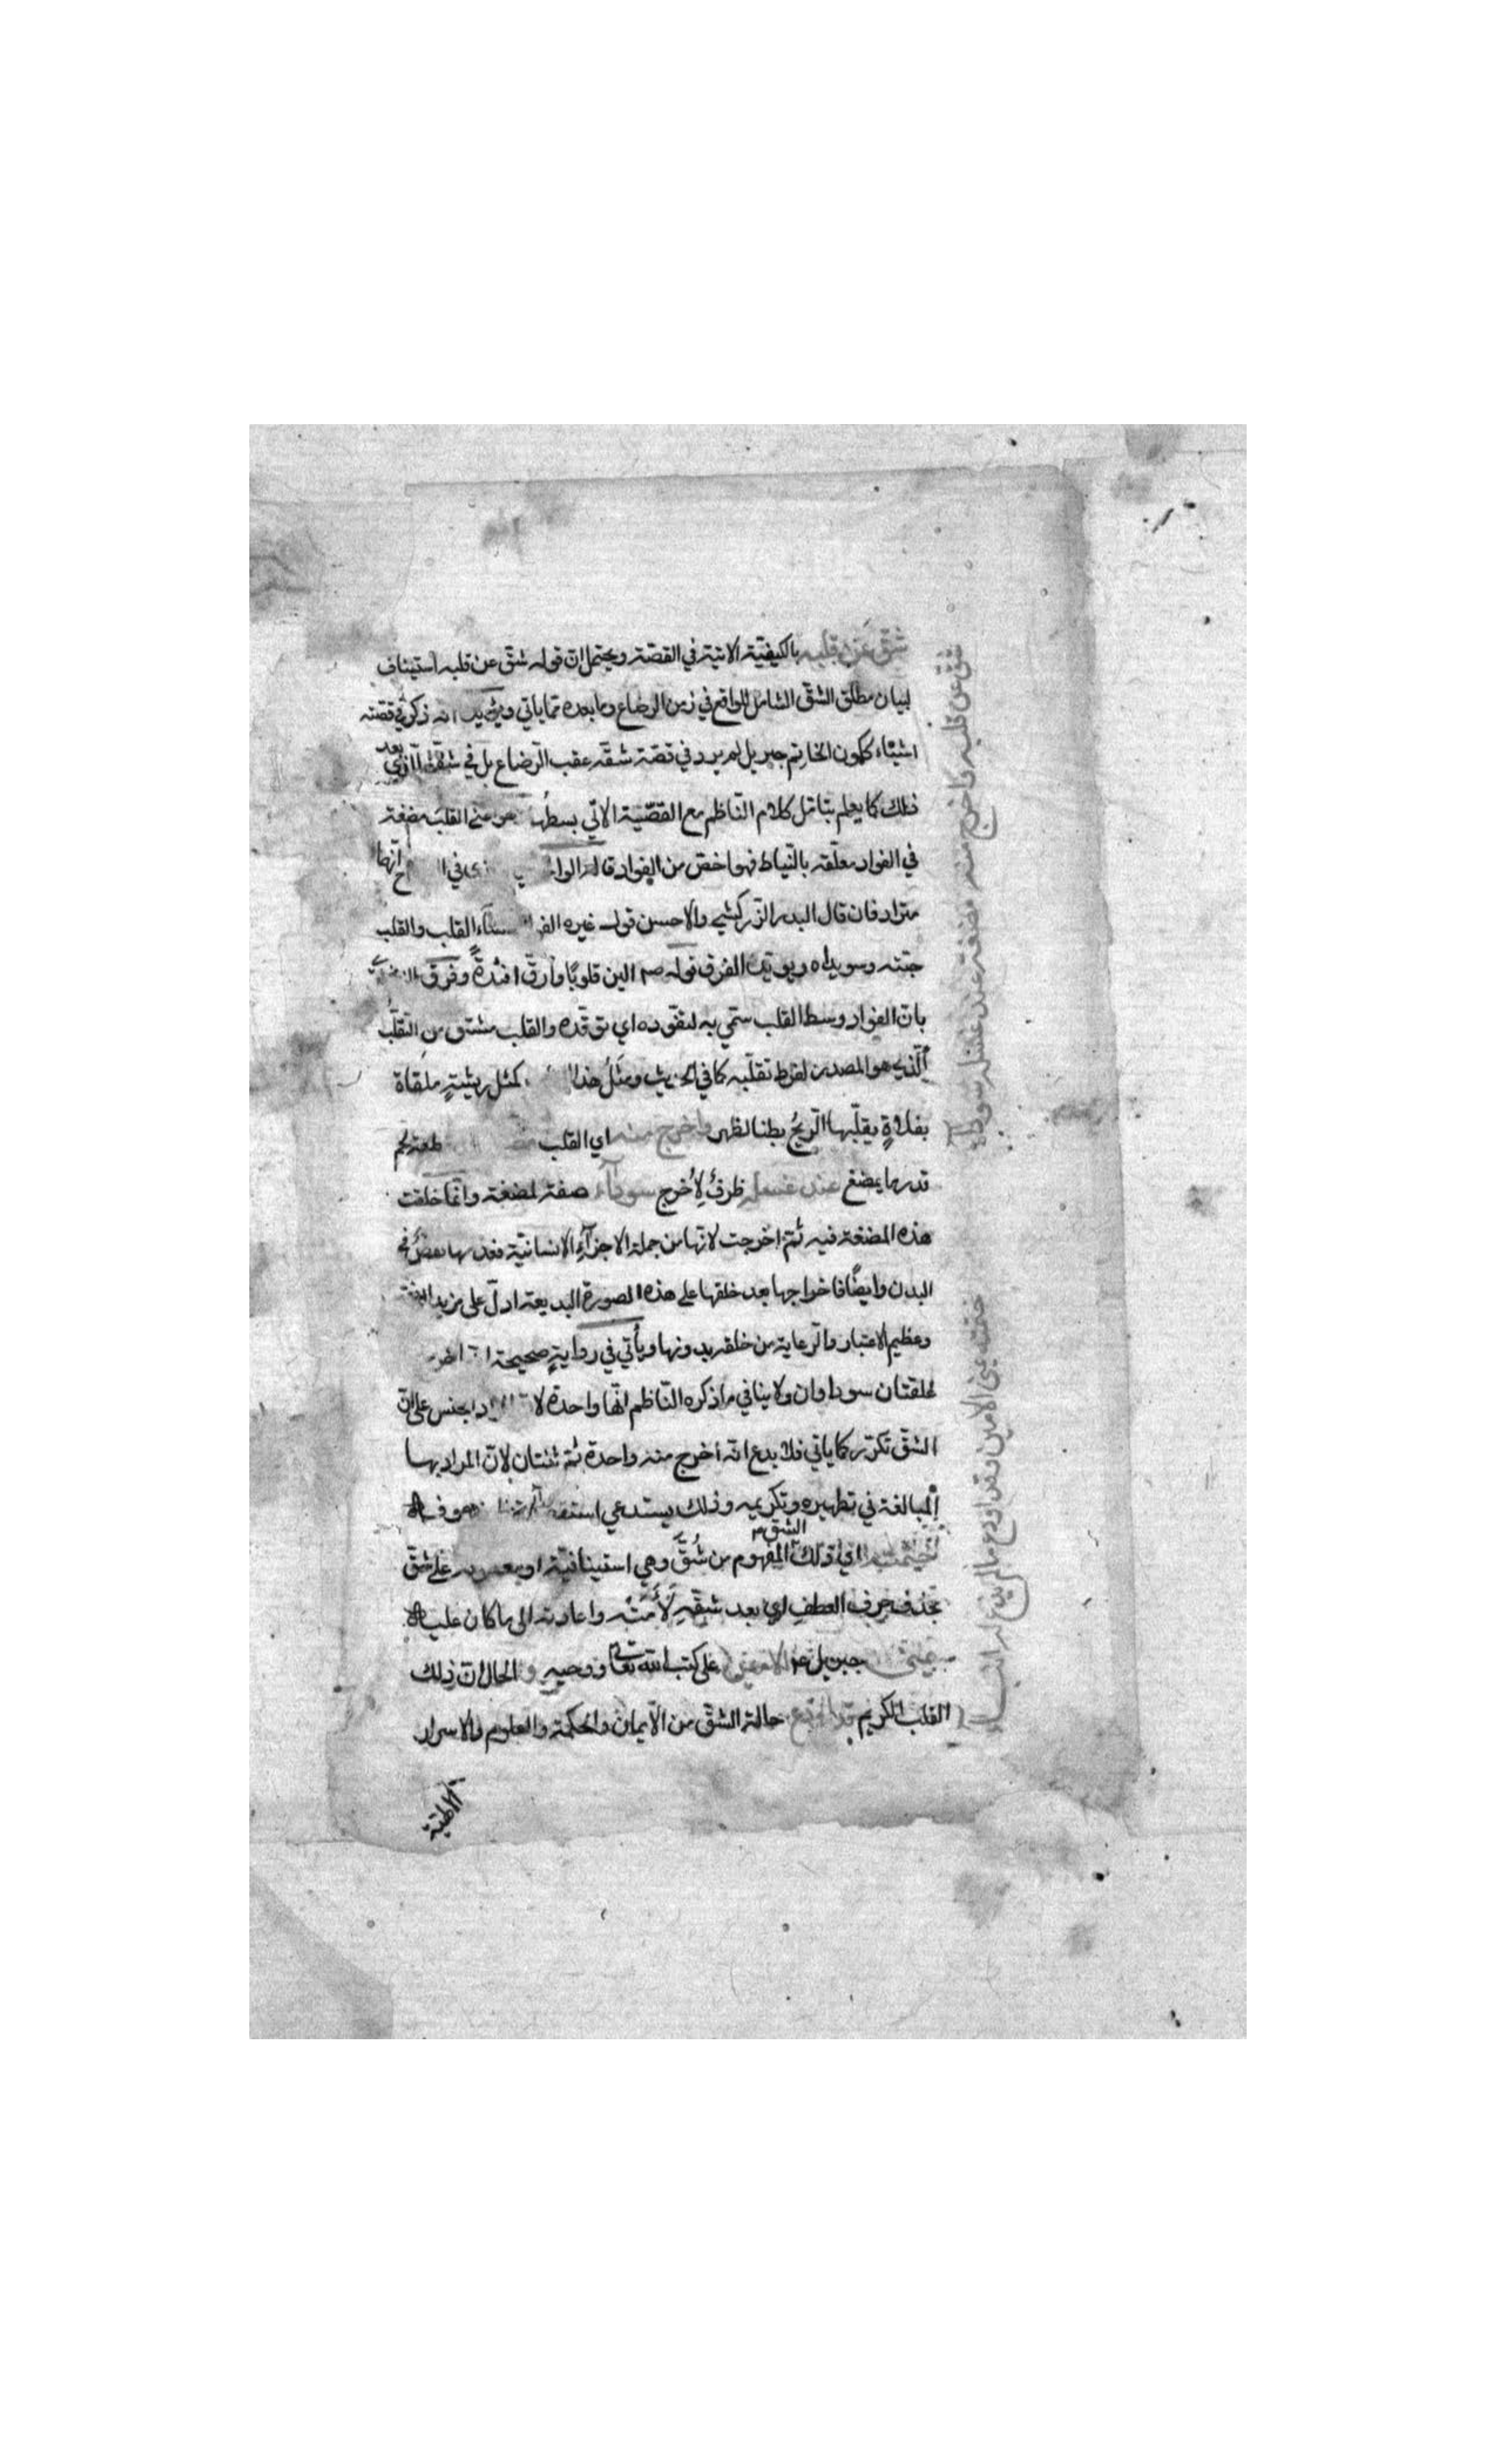 شق عن قلبه بالكيفية الاتية في القصة ويحتمل ان قوله شق عن قلبه استيناف
لبيان مطلق الشق الشامل للواقع في زمن الرضاع وما بعده مما ياتي ويؤيد انه ذكر في قصته
اشياء ككون الخاتم جبريل لم يرد في قصة شقه عقب الرضاع بل في شقه الذي بعد
ذلك كما يعلم بتامل كلام الناظم مع القصة الاتي بسطها القلب مضغة
في الفواد معلقة بالنياط فهو اخص من الفواد قاله في انهما
مترادفان قال البدر الزركشي والاحسن قول غيره القلب والقلب
حبته وسويداه ويؤيد الفرق قوله صم الين قلوبا وارق افئدة وفرق
بان الفواد وسط القلب سمي به لتفوده اي توقده والقلب مشتق من التقلب
الذي هو المصدر لفرط تقلبه كما في الحديث ومثل هذا كمثل ريشة ملقاة
بفلاة يقلبها الريح بطنا لظهر واخرج منه اي القلب لحم
قدر ما يمضغ عند غسله ظرف لاخرج سوداء صفة لمضغة وانما خلقت
هذه المضغة فيه ثم اخرجت لانها من جملة الاجزاء الانسانية
البدن وايضا فاخراجها بعد خلقها على هذه الصورة البديعة ادل على مزيد
وعظيم الاعتبار والرعاية من خلقه بدونها وياتي في رواية صحيحة
علقتان سوداوان ولا ينافي ما ذكره الناظم انها واحدة الجنس على ان
الشق تكرر كما ياتي فلا بدع انه اخرج منه واحدة ثم ثنتان لان المراد بها
المبالغة في تطهيره وتكريمه وذلك يستدعي
ختمته اي ذلك الشق المفهوم من شق وهي استينافية او على شق
بحذف حرف العطف اي بعد شقه لأمته واعادته الى ما كان عليه
جبريل الامين على كتب الله تعالى ووحيه و الحال ان ذلك
القلب الكريم قد اودع حالة الشق من الايمان والحكمة والعلوم والاسرار
شق عن قلبه واخرج منه مضغة عند غسله سوداء
ختمته يمنى الامين وقد اودع ما لم يذع له انباء